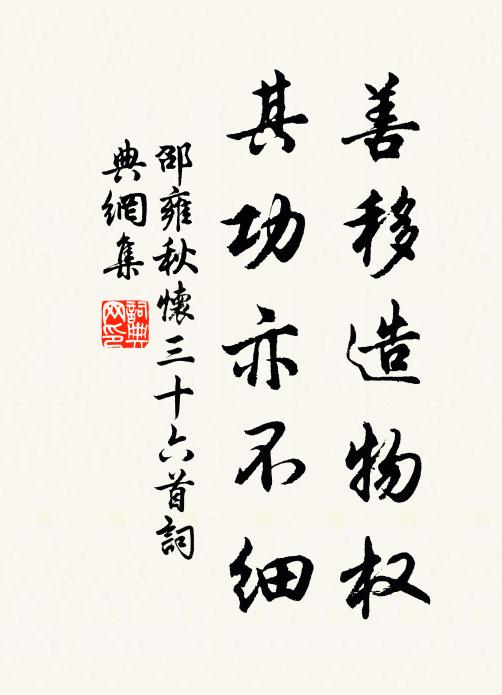 善移造物权
其功亦不细
邵雍秋懷三十六首詞
典網集
詞典
网印